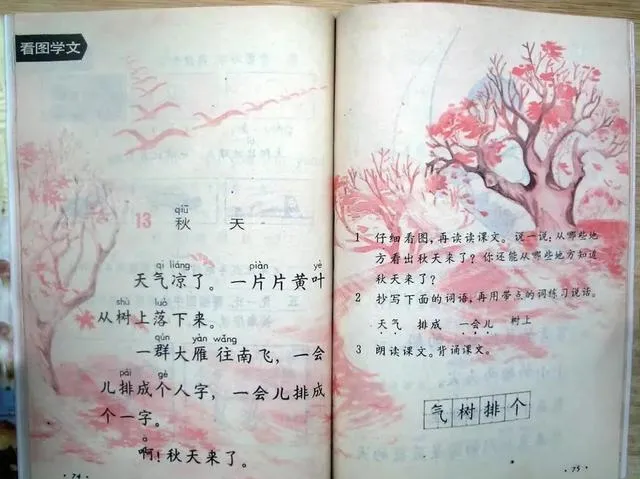 看图学文
13
qiū
秋 天
qì liáng piàn yè
天气凉了。一片片黄叶
shù luò
从树上落下来。
qún yàn wǎng
一群大雁往南飞，一会
pái gè
儿排成个人字，一会儿排成
个一字。
a
啊！秋天来了。
·74·
1 仔细看图，再读读课文。说一说：从哪些地
方看出秋天来了？你还能从哪些地方知道
秋天来了？
2 抄写下面的词语，再用带点的词练习说话。
天气 排成 一会儿 树上
3 朗读课文。背诵课文。
气树排个
·75·